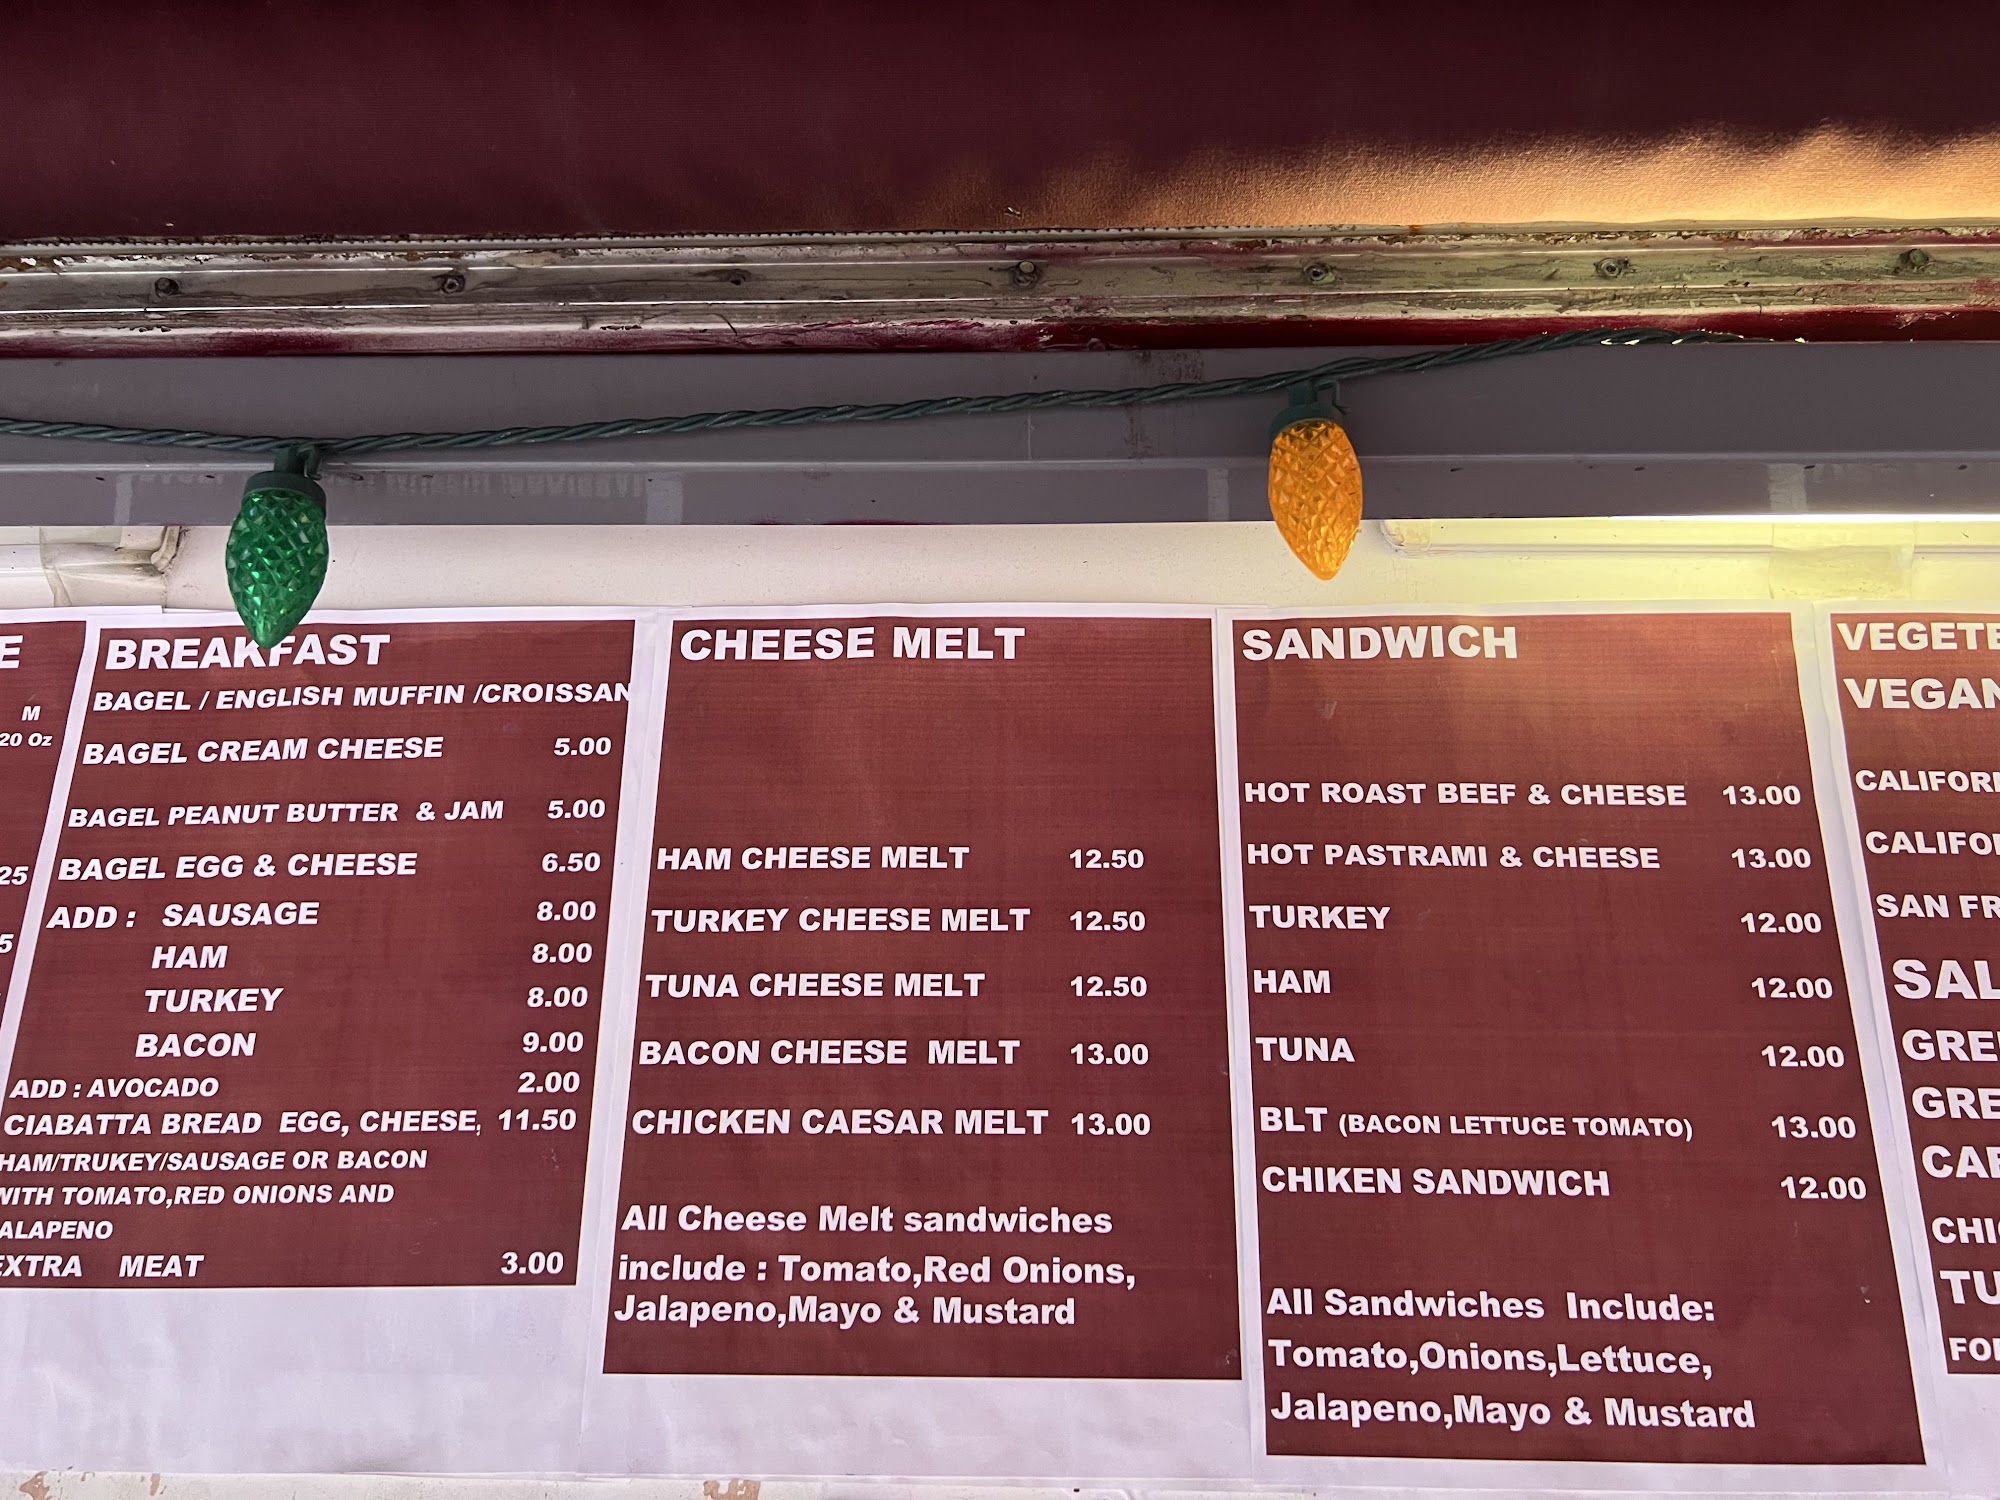 E
M
20 Oz
25
5
BREAKFAST
BAGEL / ENGLISH MUFFIN /CROISSAN
BAGEL CREAM CHEESE 5.00
BAGEL PEANUT BUTTER & JAM 5.00
BAGEL EGG & CHEESE 6.50
ADD : SAUSAGE 8.00
HAM 8.00
TURKEY 8.00
BACON 9.00
ADD : AVOCADO 2.00
CIABATTA BREAD EGG, CHEESE, 11.50
HAM/TRUKEY/SAUSAGE OR BACON
WITH TOMATO,RED ONIONS AND
ALAPENO
EXTRA MEAT 3.00
CHEESE MELT
HAM CHEESE MELT 12.50
TURKEY CHEESE MELT 12.50
TUNA CHEESE MELT 12.50
BACON CHEESE MELT 13.00
CHICKEN CAESAR MELT 13.00
All Cheese Melt sandwiches
include : Tomato,Red Onions,
Jalapeno,Mayo & Mustard
SANDWICH
HOT ROAST BEEF & CHEESE 13.00
HOT PASTRAMI & CHEESE 13.00
TURKEY 12.00
HAM 12.00
TUNA 12.00
BLT (BACON LETTUCE TOMATO) 13.00
CHIKEN SANDWICH 12.00
All Sandwiches Include:
Tomato,Onions,Lettuce,
Jalapeno,Mayo & Mustard
VEGETE
VEGAN
CALIFORN
CALIFOR
SAN FR
SAL
GREE
GRE
CAE
CHI
TU
FOR